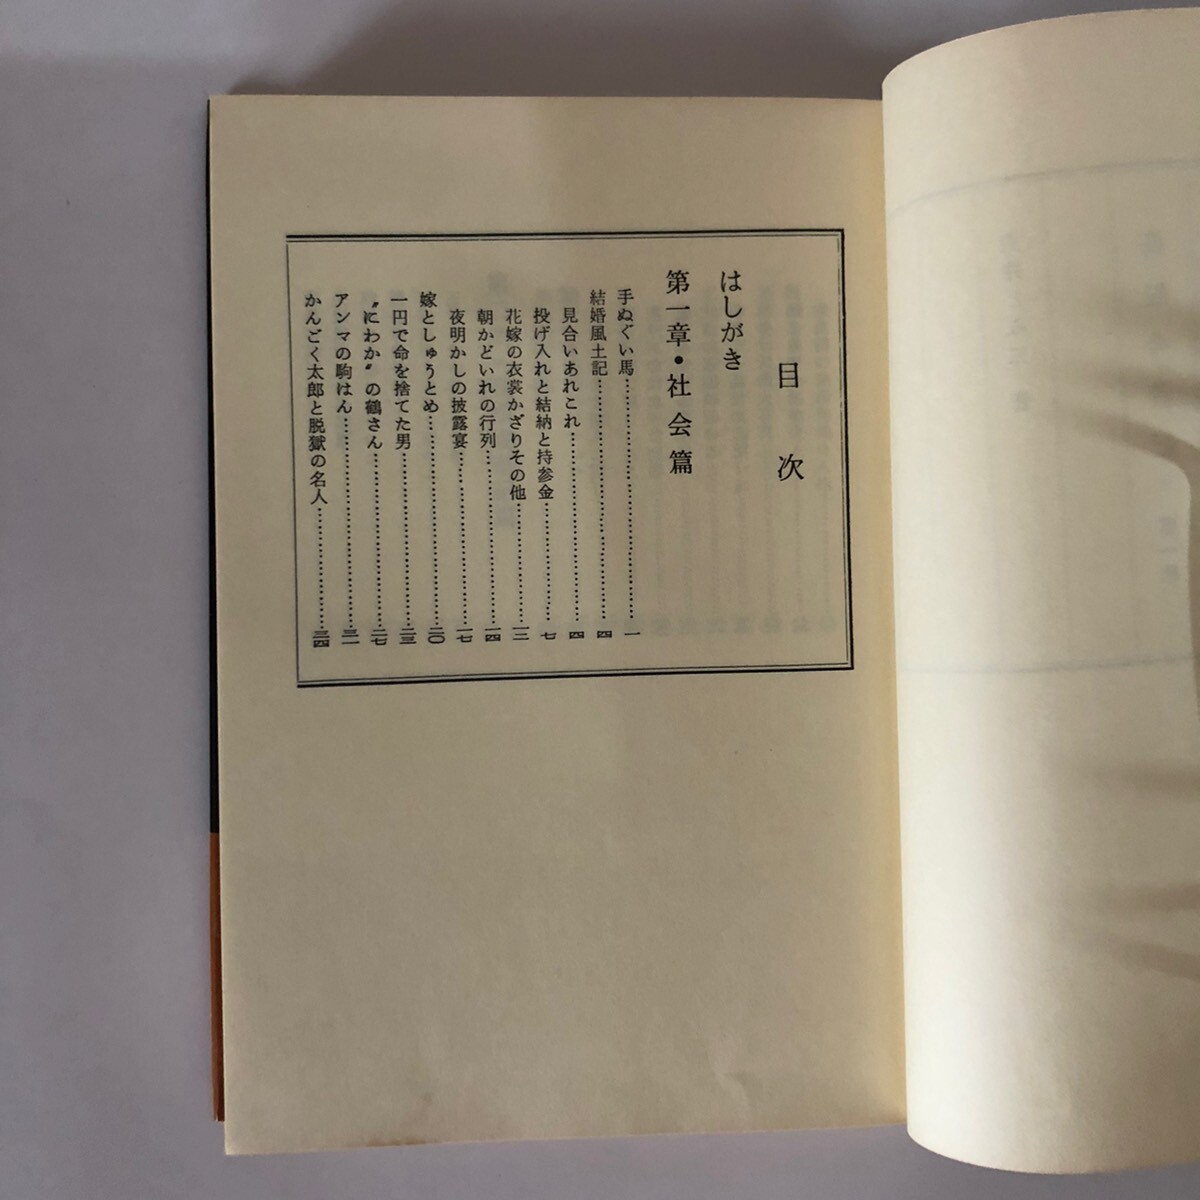 目次
はしがき
第一章・社会篇
手ぬぐい馬……一
結婚風土記……四
見合いあれこれ……四
投げ入れと結納と持参金……七
花嫁の衣裳かざりその他……一二
朝かどいれの行列……一四
夜明かしの披露宴……一七
嫁としゅうとめ……二〇
一円で命を捨てた男……二三
〝にわか〟の鶴さん……二七
アンマの駒はん……三一
かんどく太郎と脱獄の名人……三四